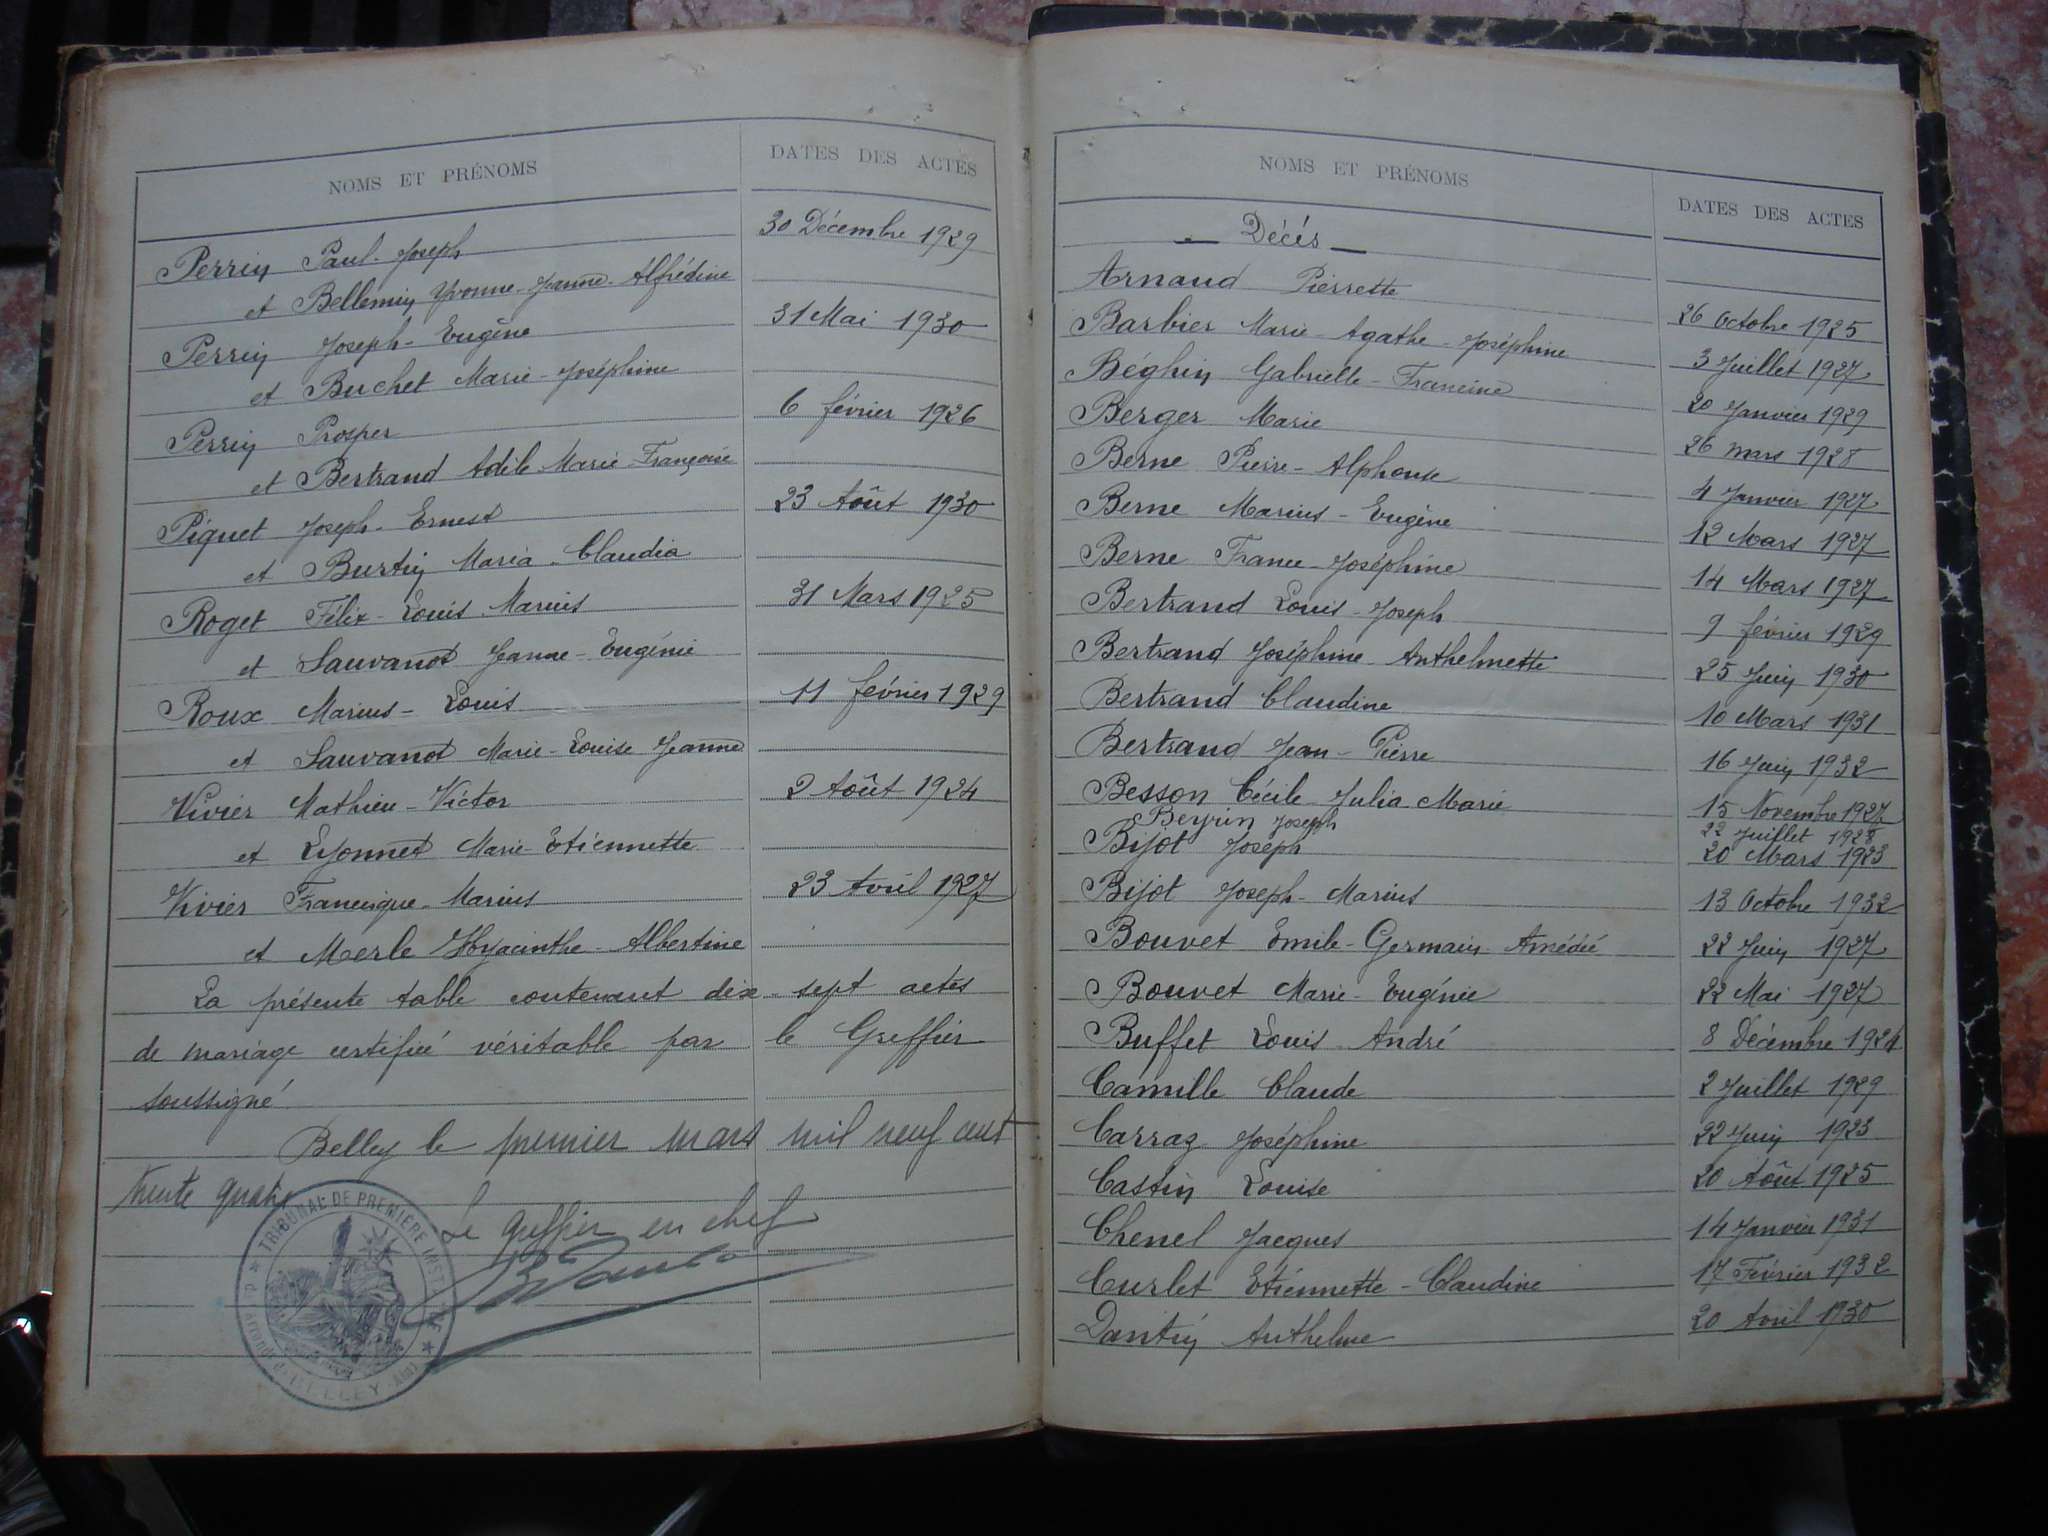 NOMS ET PRÉNOMS DATES DES ACTES
Perrin Paul-Joseph 30 Décembre 1929
et Bellemin Yvonne-Jeanne-Alfrédine
Perrin Joseph-Eugène 31 Mai 1930
et Berchet Marie-Joséphine
Perrin Prosper 6 février 1926
et Bertrand Adèle Marie-Françoise
Piquet Joseph-Ernest 23 Août 1930
et Burtin Maria-Claudia
Roget Félix-Louis-Marius 31 Mars 1925
et Sauvanot Jeanne-Eugénie
Roux Marius-Louis 11 février 1929
et Sauvanot Marie-Louise Jeanne
Vivier Mathieu-Victor 2 Août 1924
et Lyonnet Marie-Etiennette
Vivier Francisque-Marius 23 Avril 1927
et Merle Hyacinthe-Albertine
La présente table contenant dix-sept actes
de mariage certifiée véritable par le Greffier
soussigné
Belley le premier mars mil neuf cent
trente quatre
Le greffier en chef
TRIBUNAL DE PREMIÈRE INST
BELLEY (Ain)
NOMS ET PRÉNOMS DATES DES ACTES
Décés
Arnaud Pierrette 26 Octobre 1925
Barbier Marie-Agathe-Joséphine 3 Juillet 1927
Béghin Gabrielle-Francine 20 Janvier 1929
Berger Marie 26 mars 1928
Berne Pierre-Alphonse 4 Janvier 1927
Berne Marius-Eugène 12 Mars 1927
Berne France-Joséphine 14 Mars 1927
Bertrand Louis-Joseph 9 février 1929
Bertrand Joséphine Anthelmette 25 Juin 1930
Bertrand Claudine 10 Mars 1931
Bertrand Jean-Pierre 16 Juin 1932
Besson Cécile-Julia-Marie 15 Novembre 1927
Beyrin Joseph 22 Juillet 1928
Bijot Joseph 20 Mars 1923
Bijot Joseph-Marius 13 Octobre 1932
Bouvet Emile-Germain-Amédée 22 Juin 1927
Bouvet Marie-Eugénie 22 Mai 1927
Buffet Louis-André 8 Décembre 1924
Camille Claude 2 Juillet 1929
Carraz Joséphine 22 Juin 1923
Castin Louise 20 Août 1925
Chenel Jacques 14 Janvier 1931
Curlet Etiennette-Claudine 17 Février 1932
Dantin Anthelme 20 Avril 1930